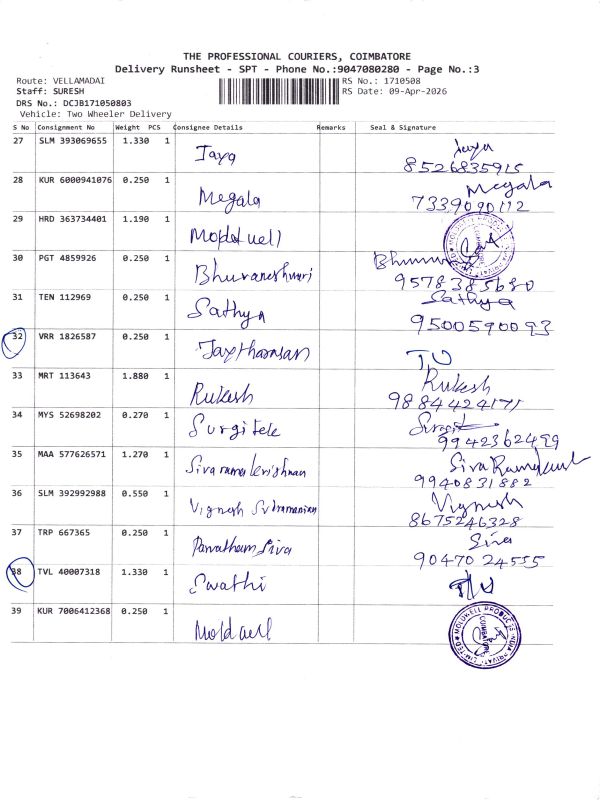 THE PROFESSIONAL COURIERS, COIMBATORE
Delivery Runsheet - SPT - Phone No.:9047080280 - Page No.:3
Route: VELLAMADAI RS No.: 1710508
Staff: SURESH RS Date: 09-Apr-2026
DRS No.: DCJB171050803
Vehicle: Two Wheeler Delivery
S No Consignment No Weight PCS Consignee Details Remarks Seal & Signature
27 SLM 393069655 1.330 1 Jaya Jaya
8526835915
28 KUR 6000941076 0.250 1 Megala Megala
7339090112
29 HRD 363734401 1.190 1 Moldwell
30 PGT 4859926 0.250 1 Bhuvaneshwari
9578385680
31 TEN 112969 0.250 1 Sathya Sathya
9500590093
32 VRR 1826587 0.250 1
33 MRT 113643 1.880 1 Rukesh Rukesh
9884424171
34 MYS 52698202 0.270 1 Surgitele
9942362499
35 MAA 577626571 1.270 1 Sivaramakrishnan
9940831882
36 SLM 392992988 0.550 1 Vignesh Subramanian Vignesh
8675246328
37 TRP 667365 0.250 1 Siva
9047024555
38 TVL 40007318 1.330 1 Swathi
39 KUR 7006412368 0.250 1 Moldwell